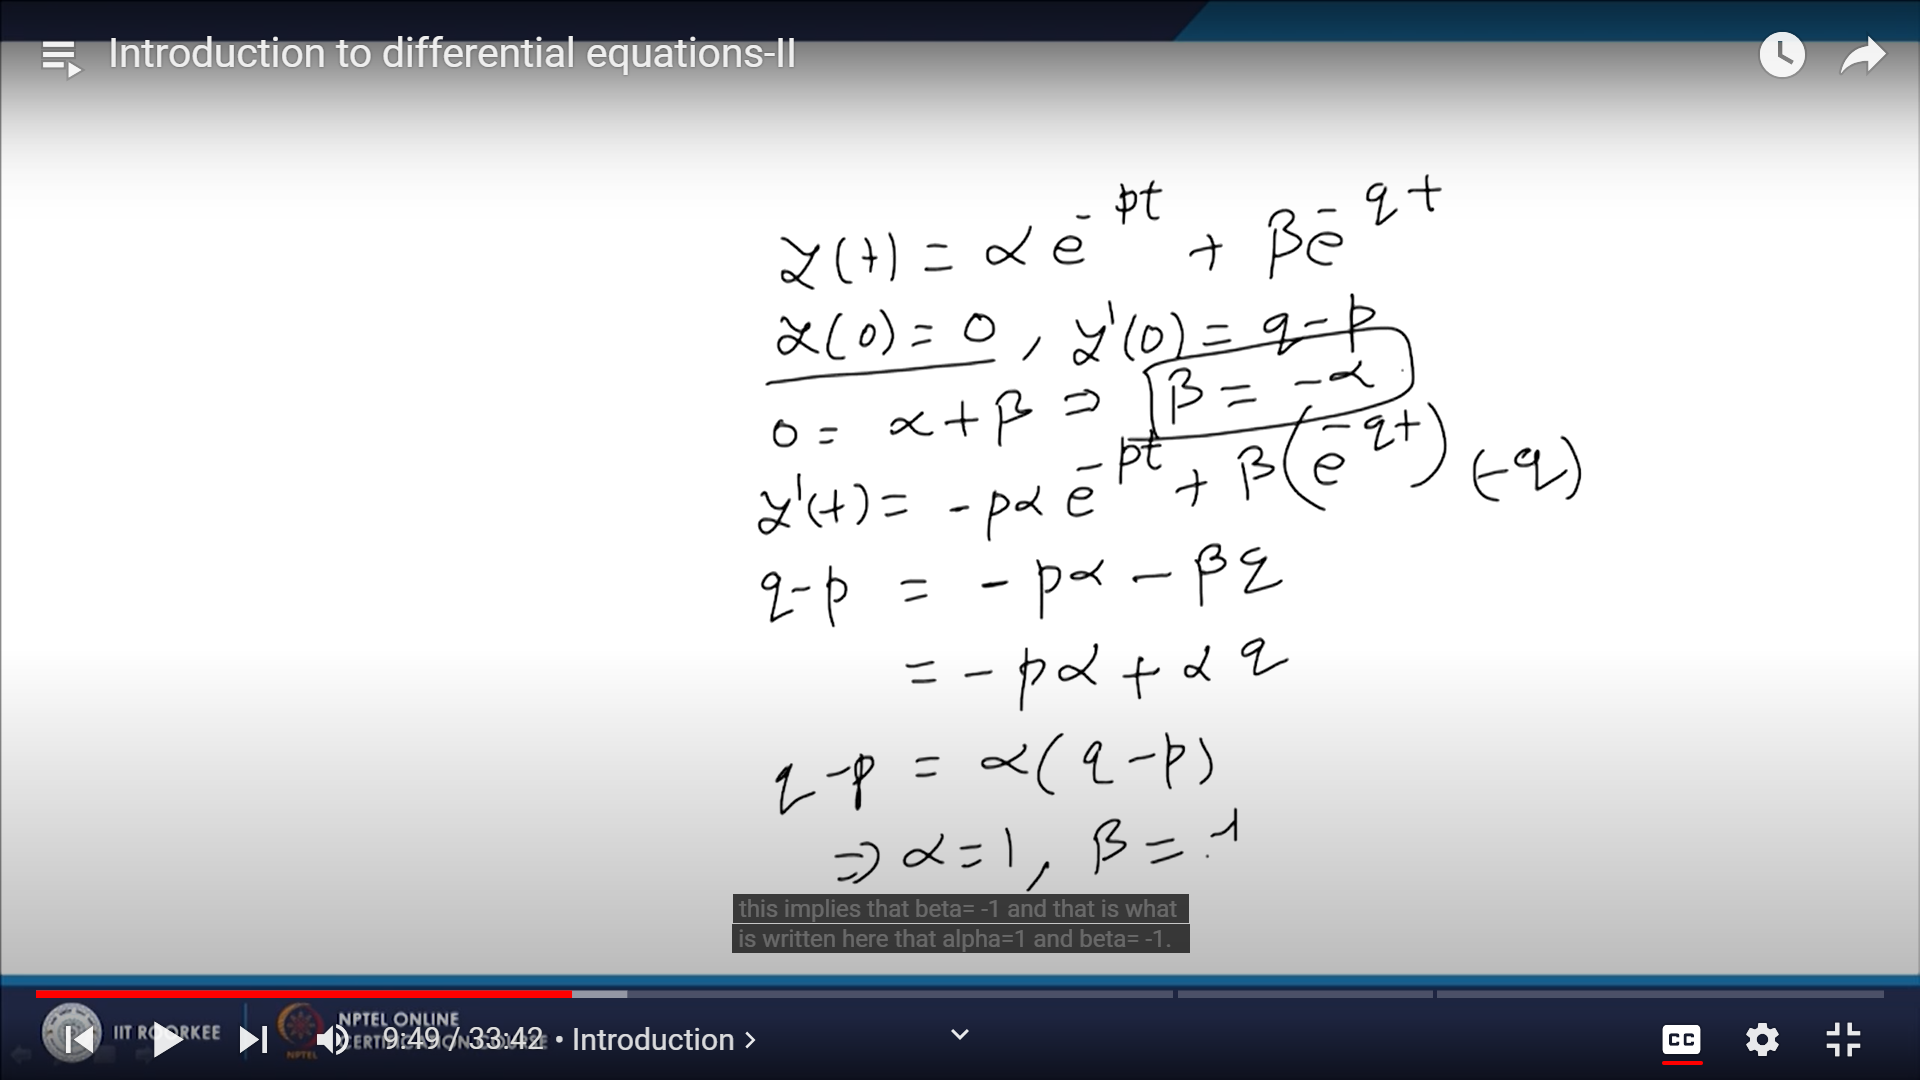 Introduction to differential equations-II
y(t) = α e^{-pt} + β e^{-qt}
y(0) = 0, y'(0) = q-p
0 = α + β ⇒ β = -α
y'(t) = -pα e^{-pt} + β(e^{-qt})(-q)
q-p = -pα - βq
= -pα + αq
q-p = α(q-p)
⇒ α = 1, β = -1
this implies that beta= -1 and that is what
is written here that alpha=1 and beta= -1.
IIT ROORKEE
NPTEL
NPTEL ONLINE
CERTIFICATION COURSE
9:49 / 33:42 • Introduction >
CC